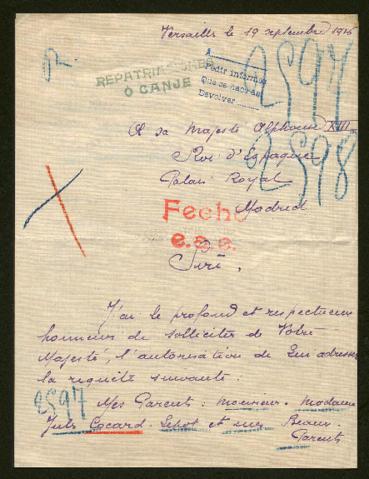 Versailles le 19 septembre 1916
REPATRIACIONES
Ó CANJE
A
Pedir informes
Que se
Devolver
2597
2598
A sa Majesté Alphonse XIII
Roi d'Espagne
Palais Royal
Madrid
Fecho
e.s.s.
Sire,
J'ai le profond et respectueux
honneur de solliciter de Votre
Majesté, l'autorisation de Lui adresser
la requête suivante
2597
Mes Parents : Monsieur. Madame
Jules Cocard. Lepot et mes Beaux-
Parents